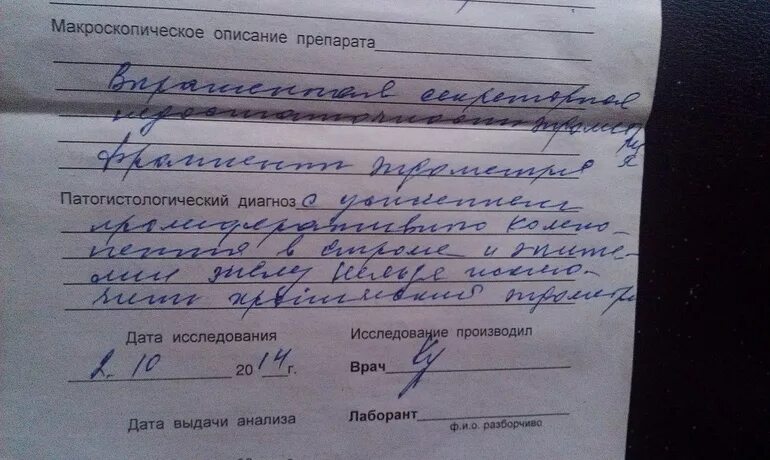 Макроскопическое описание препарата
Выраженная секреторная
недостаточность эндомет
рия
фрагменты эндометрия
Патогистологический диагноз с усилением
пролиферативного компо-
нента в строме и эпите-
лии желез Нельзя исклю-
чить хронический эндометри
Дата исследования
2.10 2014г.
Исследование производил
Врач
Дата выдачи анализа
Лаборант
ф.и.о. разборчиво